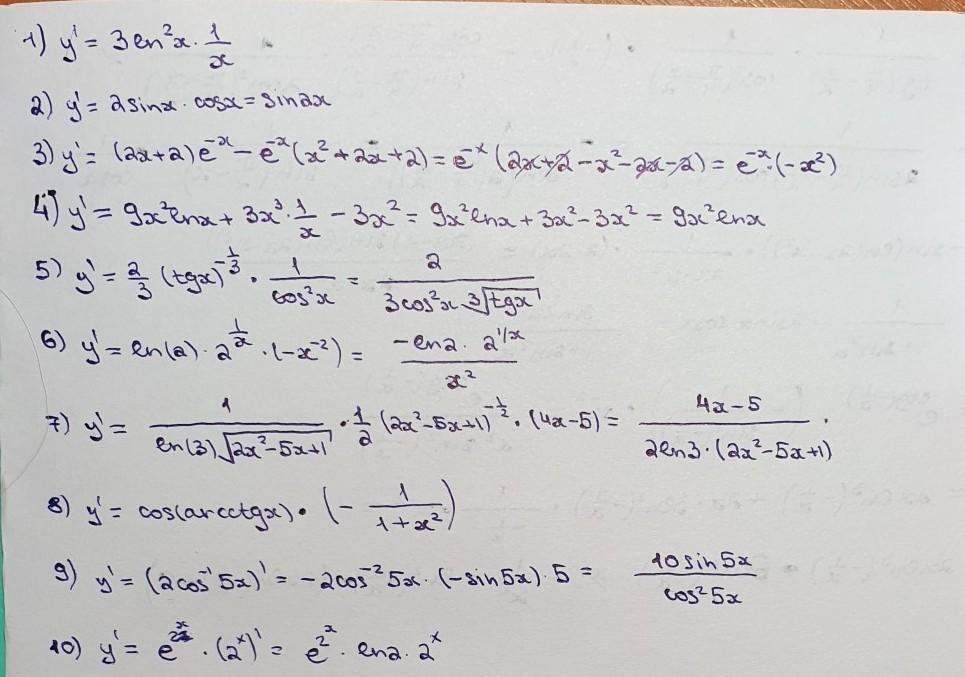 1) y' = 3ln²x · 1/x
2) y' = 2sinx · cosx = sin2x
3) y' = (2x+2)e^-x − e^-x(x²+2x+2) = e^-x(2x+2−x²−2x−2) = e^-x·(−x²)
4) y' = 9x²lnx + 3x³·1/x − 3x² = 9x²lnx + 3x² − 3x² = 9x²lnx
5) y' = 2/3 (tgx)^(-1/3) · 1/cos²x = 2/(3cos²x ∛tgx)
6) y' = ln(2) · 2^(1/x) · (−x^-2) = (−ln2 · 2^(1/x))/x²
7) y' = 1/(ln(3)√(2x²−5x+1)) · 1/2 (2x²−5x+1)^(-1/2) · (4x−5) = (4x−5)/(2ln3·(2x²−5x+1)) ·
8) y' = cos(arcctgx) · (− 1/(1+x²))
9) y' = (2cos^-1 5x)' = −2cos^-2 5x · (−sin5x) · 5 = 10sin5x/cos²5x
10) y' = e^(2^x) · (2^x)' = e^(2^x) · ln2 · 2^x